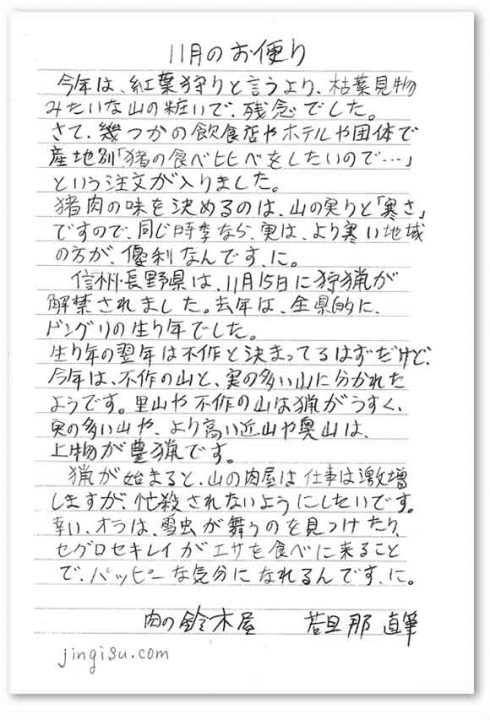 11月のお便り
今年は、紅葉狩りと言うより、枯葉見物
みたいな山の粧いで、残念でした。
さて、幾つかの飲食店やホテルや団体で
産地別「猪の食べ比べをしたいので…」
という注文が入りました。
猪肉の味を決めるのは、山の実りと「寒さ」
ですので、同じ時季なら、実は、より寒い地域
の方が、優利なんです、に。
信州・長野県は、11月15日に狩猟が
解禁されました。去年は、全県的に、
ドングリの生り年でした。
生り年の翌年は不作と決まってるはずだけど、
今年は、不作の山と、実の多い山に分かれた
ようです。里山や不作の山は猟がうすく、
実の多い山や、より高い近山や奥山は、
上物が豊猟です。
猟が始まると、山の肉屋は仕事は激増
しますが、忙殺されないようにしたいです。
幸い、オラは、雪虫が舞うのを見つけたり、
セグロセキレイがエサを食べに来ること
で、ハッピーな気分になれるんです、に。
肉の鈴木屋 若旦那 直筆
jingisu.com